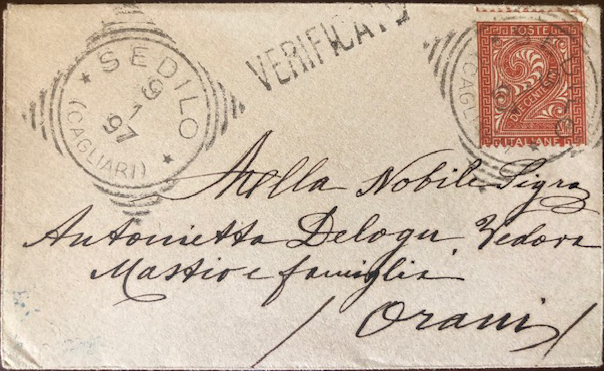 SEDILO
9
1
97
(CAGLIARI)
VERIFICATO
POSTE
DUE CENTESIMI
ITALIANE
Alla Nobile Sigra
Antonietta Delogu Vedova
Mastio e famiglia
Orani